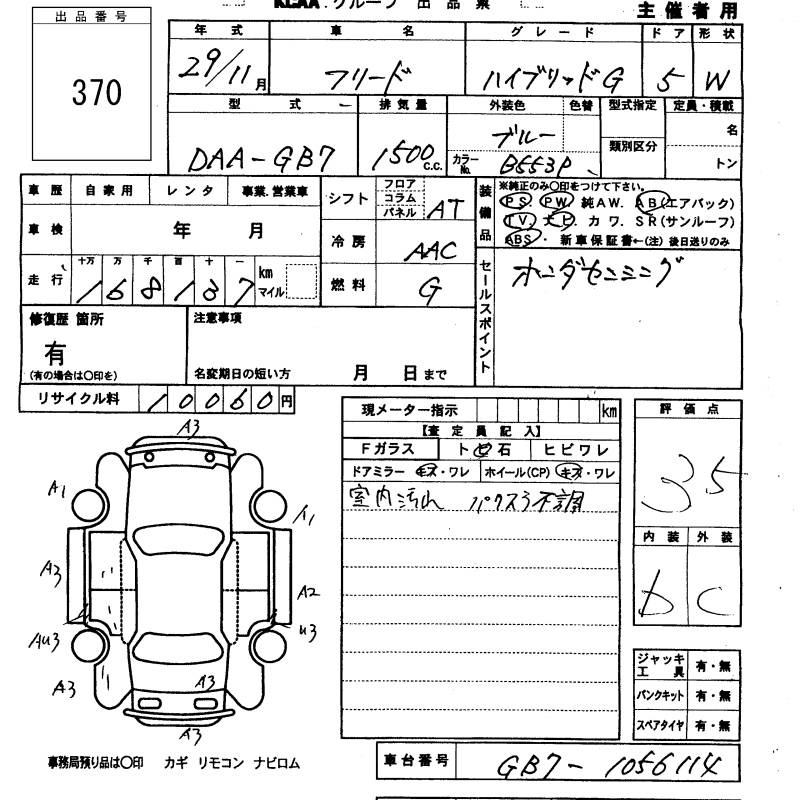 KCAA グループ 出品票
主催者用
出品番号
370
年式 車名 グレード ドア 形状
29/11月 フリード ハイブリッドG 5 W
型式 排気量 外装色 色替 型式指定 定員・積載
DAA-GB7 1500c.c. ブルー 類別区分 名
カラーNo. B553P トン
車歴 自家用 レンタ 事業.営業車
車検 年 月
走行 十万 万 千 百 十 一 km マイル
168137
シフト フロア コラム パネル AT
冷房 AAC
燃料 G
装備品 ※純正のみ〇印をつけて下さい。
PS. PW. 純AW. AB(エアバック)
TV. ナビ カワ. SR(サンルーフ)
ABS・ 新車保証書←(注) 後日送りのみ
セールスポイント ホンダセンシング
修復歴 箇所
有
(有の場合は〇印を)
注意事項
名変期日の短い方 月 日まで
リサイクル料 10060円
現メーター指示 km
【査定員記入】
Fガラス トビ石 ヒビワレ
ドアミラー キズ・ワレ ホイール(CP) キズ・ワレ
室内汚れ パワスラ不調
評価点
3.5
内装 外装
D C
A3
A1 A1
A3 A2
AU3 U3
A3 A3
A3
ジャッキ 工具 有・無
パンクキット 有・無
スペアタイヤ 有・無
事務局預り品は〇印 カギ リモコン ナビロム
車台番号 GB7-1056114